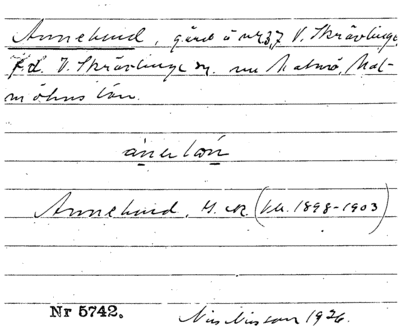 Annelund, gård å nr 37 V. Skrävlinge,
f.d. V. Skrävlinge sn. nu Malmö, Mal-
möhus län.
Annelund. G. K. (Utg. 1898-1903)
Nr 5742.
Nils Nilsson 1926.